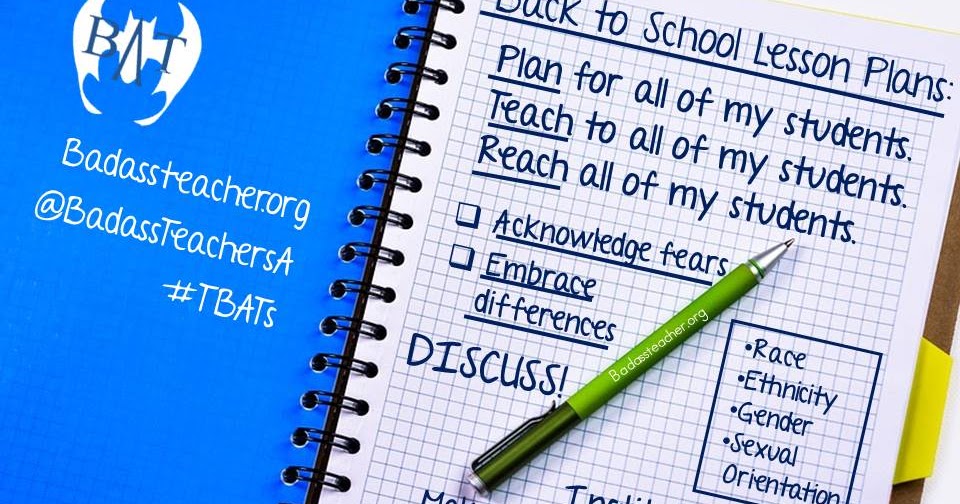 BAT
Badassteacher.org
@BadassTeachersA
#TBATs
Back to School Lesson Plans:
Plan for all of my students.
Teach to all of my students.
Reach all of my students.
❑ Acknowledge fears
❑ Embrace
differences
DISCUSS!
Badassteacher.org
•Race
•Ethnicity
•Gender
•Sexual
Orientation